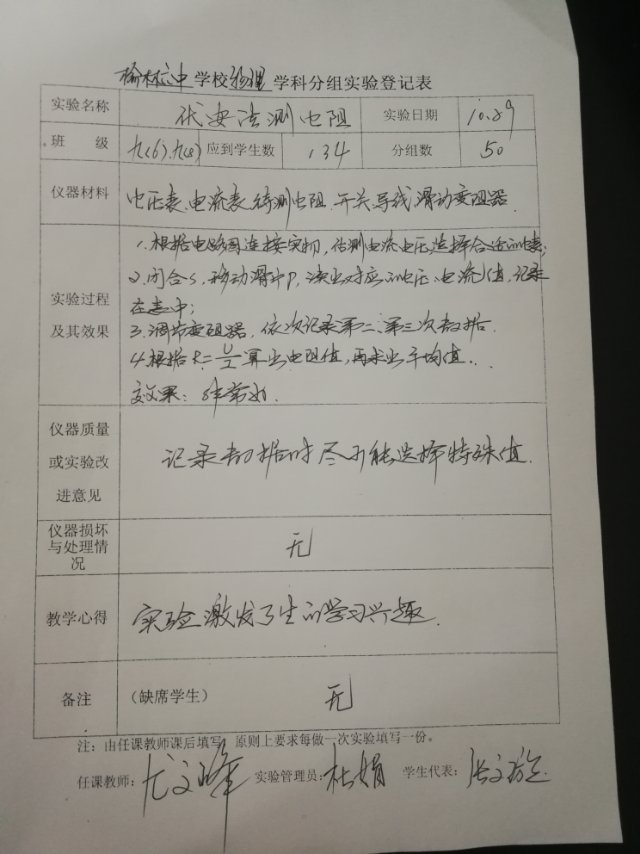 榆林六中学校物理学科分组实验登记表
实验名称 伏安法测电阻 实验日期 10.29
班 级 九(6).九(8) 应到学生数 134 分组数 50
仪器材料 电压表.电流表.待测电阻.开关导线滑动变阻器.
实验过程及其效果
1.根据电路图连接实物,估测电流电压选择合适的表;
2.闭合S,移动滑片P,读出对应的电压、电流值,记录
在表中;
3.调节变阻器,依次记录第二、第三次数据.
4.根据R=U/I算出电阻值,再求出平均值.
效果:非常好.
仪器质量或实验改进意见 记录数据时尽可能选择特殊值.
仪器损坏与处理情况 无
教学心得 实验激发了生的学习兴趣.
备注 (缺席学生) 无
注:由任课教师课后填写,原则上要求每做一次实验填写一份。
任课教师:尤文峰 实验管理员:杜娟 学生代表:张文